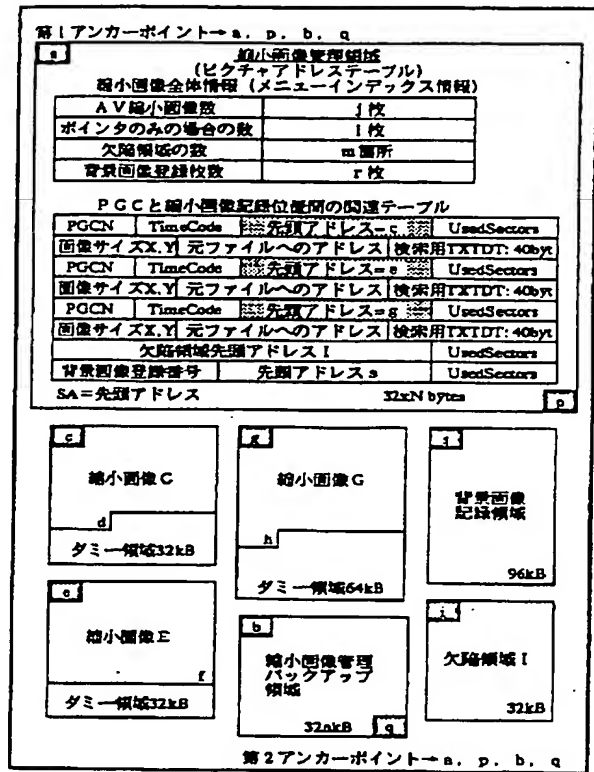 第1アンカーポイント→a, p, b, q
a
縮小画像管理領域
(ピクチャアドレステーブル)
縮小画像全体情報 (メニューインデックス情報)
AV縮小画像数 j枚
ポインタのみの場合の数 l枚
欠陥領域の数 m箇所
背景画像登録枚数 r枚
PGCと縮小画像記録位置間の関連テーブル
PGCN TimeCode 先頭アドレス=c UsedSectors
画像サイズX,Y 元ファイルへのアドレス 検索用TXTDT: 40byt
PGCN TimeCode 先頭アドレス=e UsedSectors
画像サイズX,Y 元ファイルへのアドレス 検索用TXTDT: 40byt
PGCN TimeCode 先頭アドレス=g UsedSectors
画像サイズX,Y 元ファイルへのアドレス 検索用TXTDT: 40byt
欠陥領域先頭アドレス I UsedSectors
背景画像登録番号 先頭アドレス s UsedSectors
SA=先頭アドレス 32xN bytes p
c
縮小画像C
d
ダミー領域32kB
g
縮小画像G
h
ダミー領域64kB
背景画像
記録領域
96kB
e
縮小画像E
f
ダミー領域32kB
b
縮小画像管理
バックアップ
領域
32nkB q
i
欠陥領域I
32kB
第2アンカーポイント→a, p, b, q